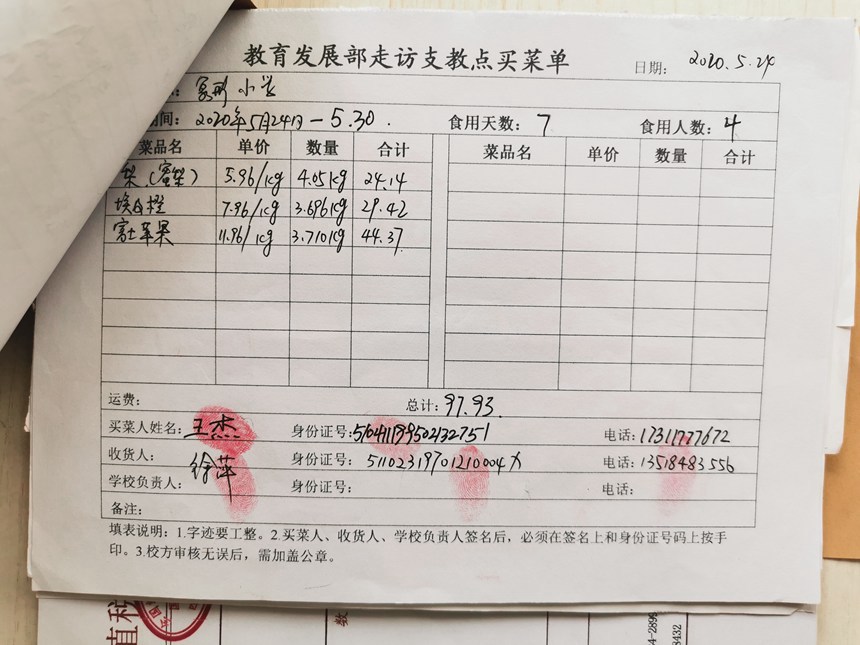 教育发展部走访支教点买菜单
日期: 2020.5.24
小学
间: 2020年5月24日—5.30. 食用天数: 7 食用人数: 4
菜品名 单价 数量 合计 菜品名 单价 数量 合计
梨(蜜梨) 5.96/kg 4.05kg 24.14
埃及橙 7.96/kg 3.696kg 29.42
富士苹果 11.96/kg 3.710kg 44.37
运费: 总计: 97.93
买菜人姓名: 王杰 身份证号: 电话: 17311777672
收货人: 徐萍 身份证号: 电话: 13518483556
学校负责人: 身份证号: 电话:
备注:
填表说明：1.字迹要工整。2.买菜人、收货人、学校负责人签名后，必须在签名上和身份证号码上按手
印。3.校方审核无误后，需加盖公章。
值税
数
8432